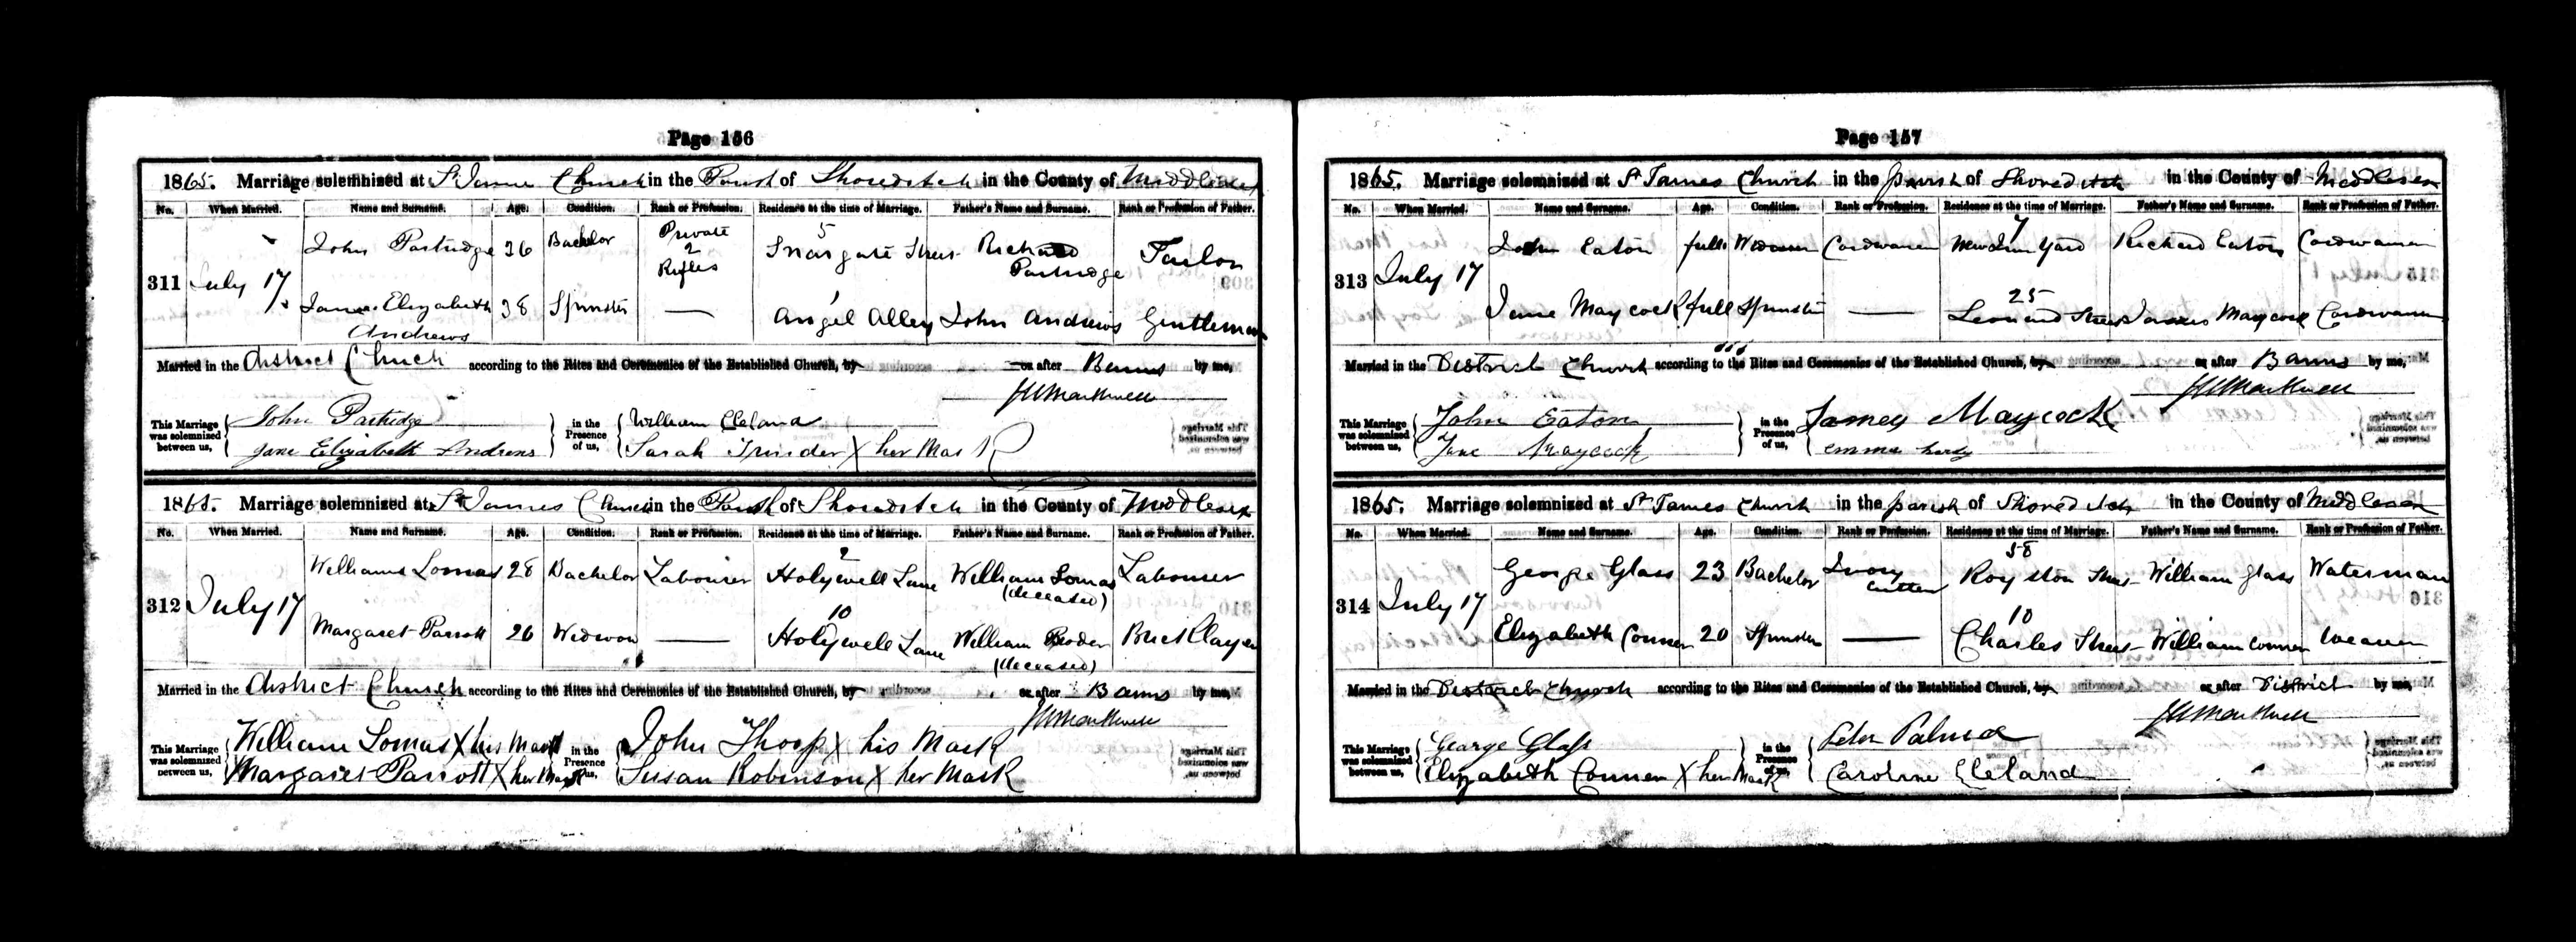 Page 156
1865. Marriage solemnized at St James Church in the Parish of Shoreditch in the County of Middlesex
No. When Married. Name and Surname. Age. Condition. Rank or Profession. Residence at the time of Marriage. Father's Name and Surname. Rank or Profession of Father.
311 July 17 John Partridge 36 Bachelor Private 2 Rifles 5 Snargate Street Richard Partridge Tailor
Jane Elizabeth Andrews 38 Spinster — 1 Angel Alley John Andrews Gentleman
Married in the District Church according to the Rites and Ceremonies of the Established Church, by or after Banns by me,
This Marriage was solemnized between us, John Partridge in the Presence of us, William Cleland
Jane Elizabeth Andrews Sarah X her Mark
1865. Marriage solemnized at St James Church in the Parish of Shoreditch in the County of Middlesex
No. When Married. Name and Surname. Age. Condition. Rank or Profession. Residence at the time of Marriage. Father's Name and Surname. Rank or Profession of Father.
312 July 17 William Lomas 28 Bachelor Labourer 2 Holywell Lane William Lomas (deceased) Labourer
Margaret Parrott 26 Widwow — 10 Holywell Lane William (deceased) Bricklayer
Married in the District Church according to the Rites and Ceremonies of the Established Church, by or after Banns by me,
This Marriage was solemnized between us, William Lomas X his Mark in the Presence of us, John Thorp X his Mark
Margaret Parrott X her Mark Susan Robinson X her Mark
Page 157
1865. Marriage solemnized at St James Church in the parish of Shoreditch in the County of Middlesex
No. When Married. Name and Surname. Age. Condition. Rank or Profession. Residence at the time of Marriage. Father's Name and Surname. Rank or Profession of Father.
313 July 17 John Eaton full Widower Cordwainer 7 New Inn Yard Richard Eaton Cordwainer
Jane Maycock full Spinster — 25 Leonard Street James Maycock Cordwainer
Married in the District Church according to the Rites and Ceremonies of the Established Church, by or after Banns by me,
This Marriage was solemnized between us, John Eaton in the Presence of us, James Maycock
Jane Maycock Emma
1865. Marriage solemnized at St James Church in the parish of Shoreditch in the County of Middlesex
No. When Married. Name and Surname. Age. Condition. Rank or Profession. Residence at the time of Marriage. Father's Name and Surname. Rank or Profession of Father.
314 July 17 George Glass 23 Bachelor Ivory Cutter 58 Royston Street William Glass Waterman
Elizabeth Conner 20 Spinster — 10 Charles Street William Conner Weaver
Married in the District Church according to the Rites and Ceremonies of the Established Church, by or after District by me,
This Marriage was solemnized between us, George Glass in the Presence of us, Palmer
Elizabeth Conner X her Mark Caroline Cleland